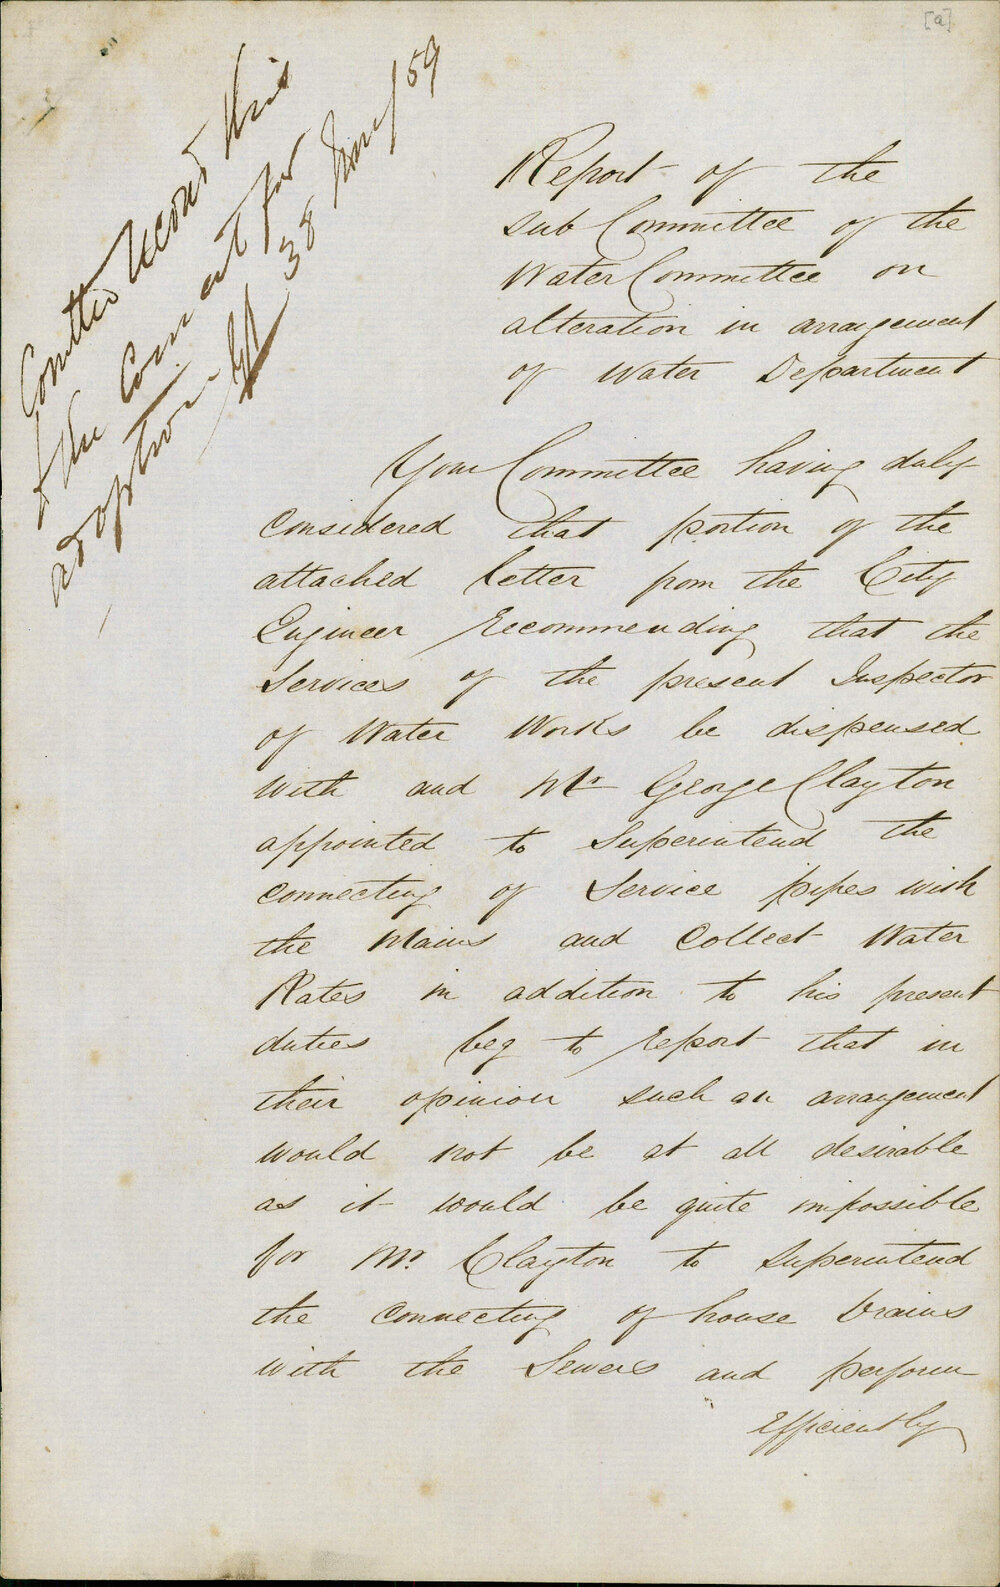 [a]
Report of the
sub Committee of the
Water Committee on
alteration in arrangement
of Water Department
Your Committee having duly
considered that portion of the
attached letter from the City
Engineer recommending that the
Services of the present Inspector
of Water Works be dispensed
with and Mr George Clayton
appointed to Superintend the
connecting of Service pipes with
the Mains and Collect Water
Rates in addition to his present
duties beg to report that in
their opinion such an arrangement
would not be at all desirable
as it would be quite impossible
for Mr. Clayton to Superintend
the connecting of house Drains
with the Sewers and perform
efficiently
this
the for
adoption